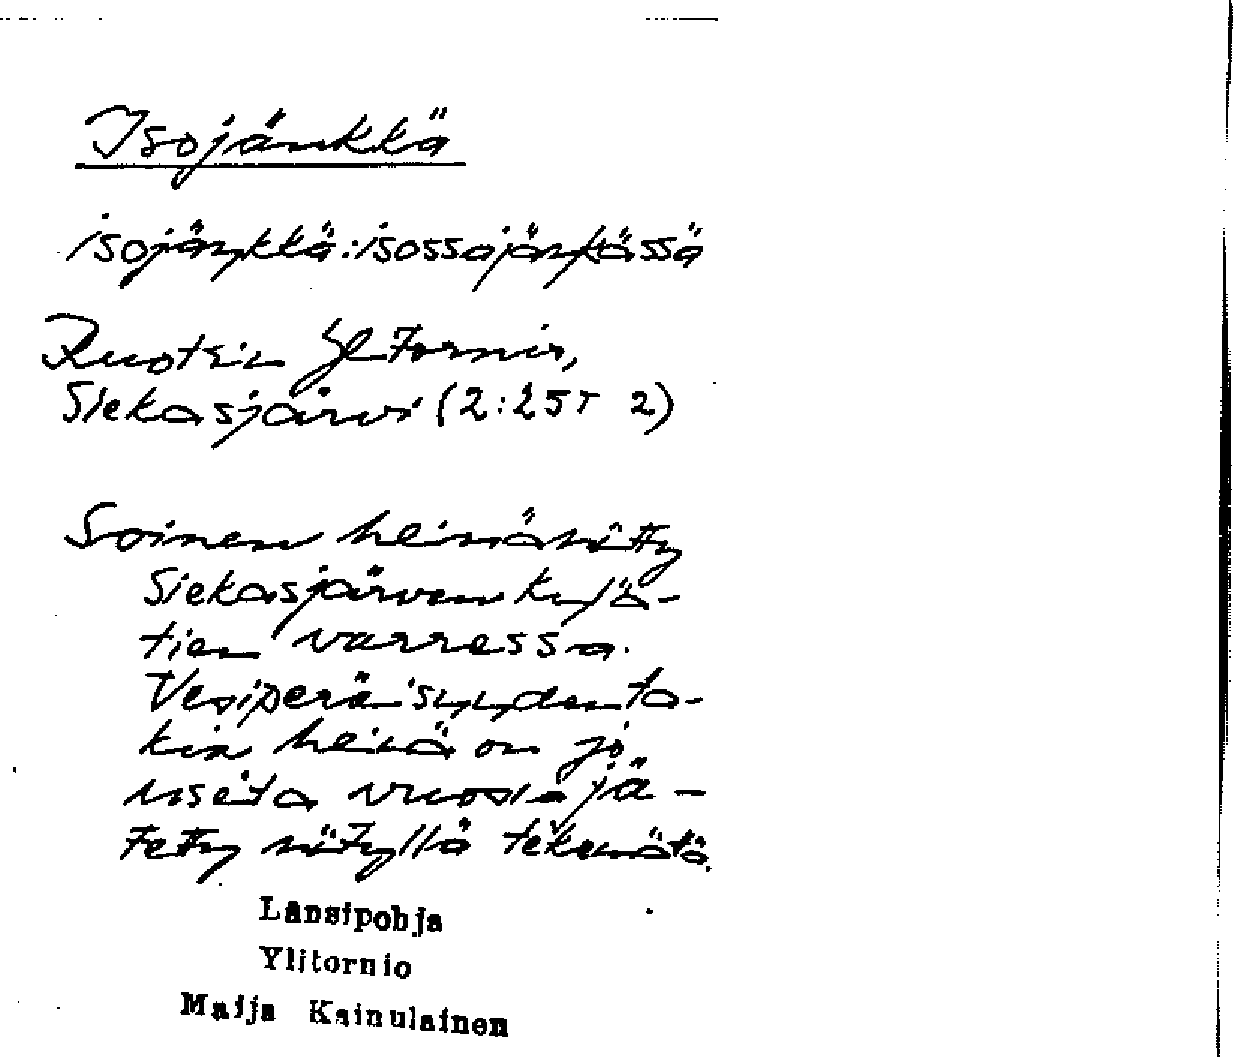 Isojänkkä
isojänkkä:isossajänkässä
Ruotsin Ylitornio,
Siekasjärvi (2:25T 2)
Soinen heinäniitty
Siekasjärven kylä-
tien varressa.
Vesiperäisyydentä-
kin heinä on jo
useita vuosia jä-
tetty niityllä tekemätä.
Länsipohja
Ylitornio
Maija Kainulainen